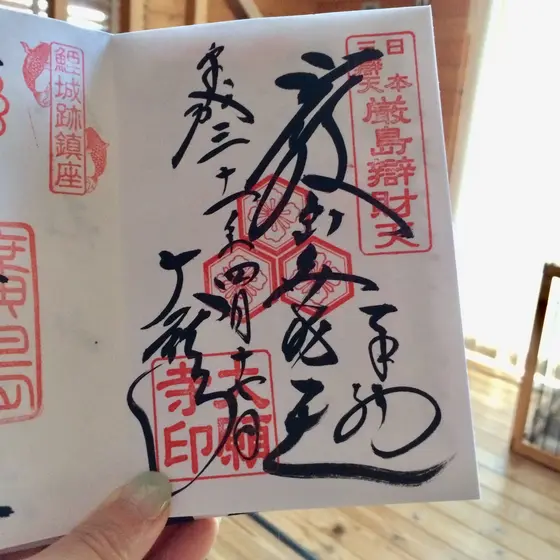 奉拝
日本三辯天
厳島辯財天
厳島弁財天
平成三十一年四月十六日
大願寺
大願寺印
鯉城跡鎮座